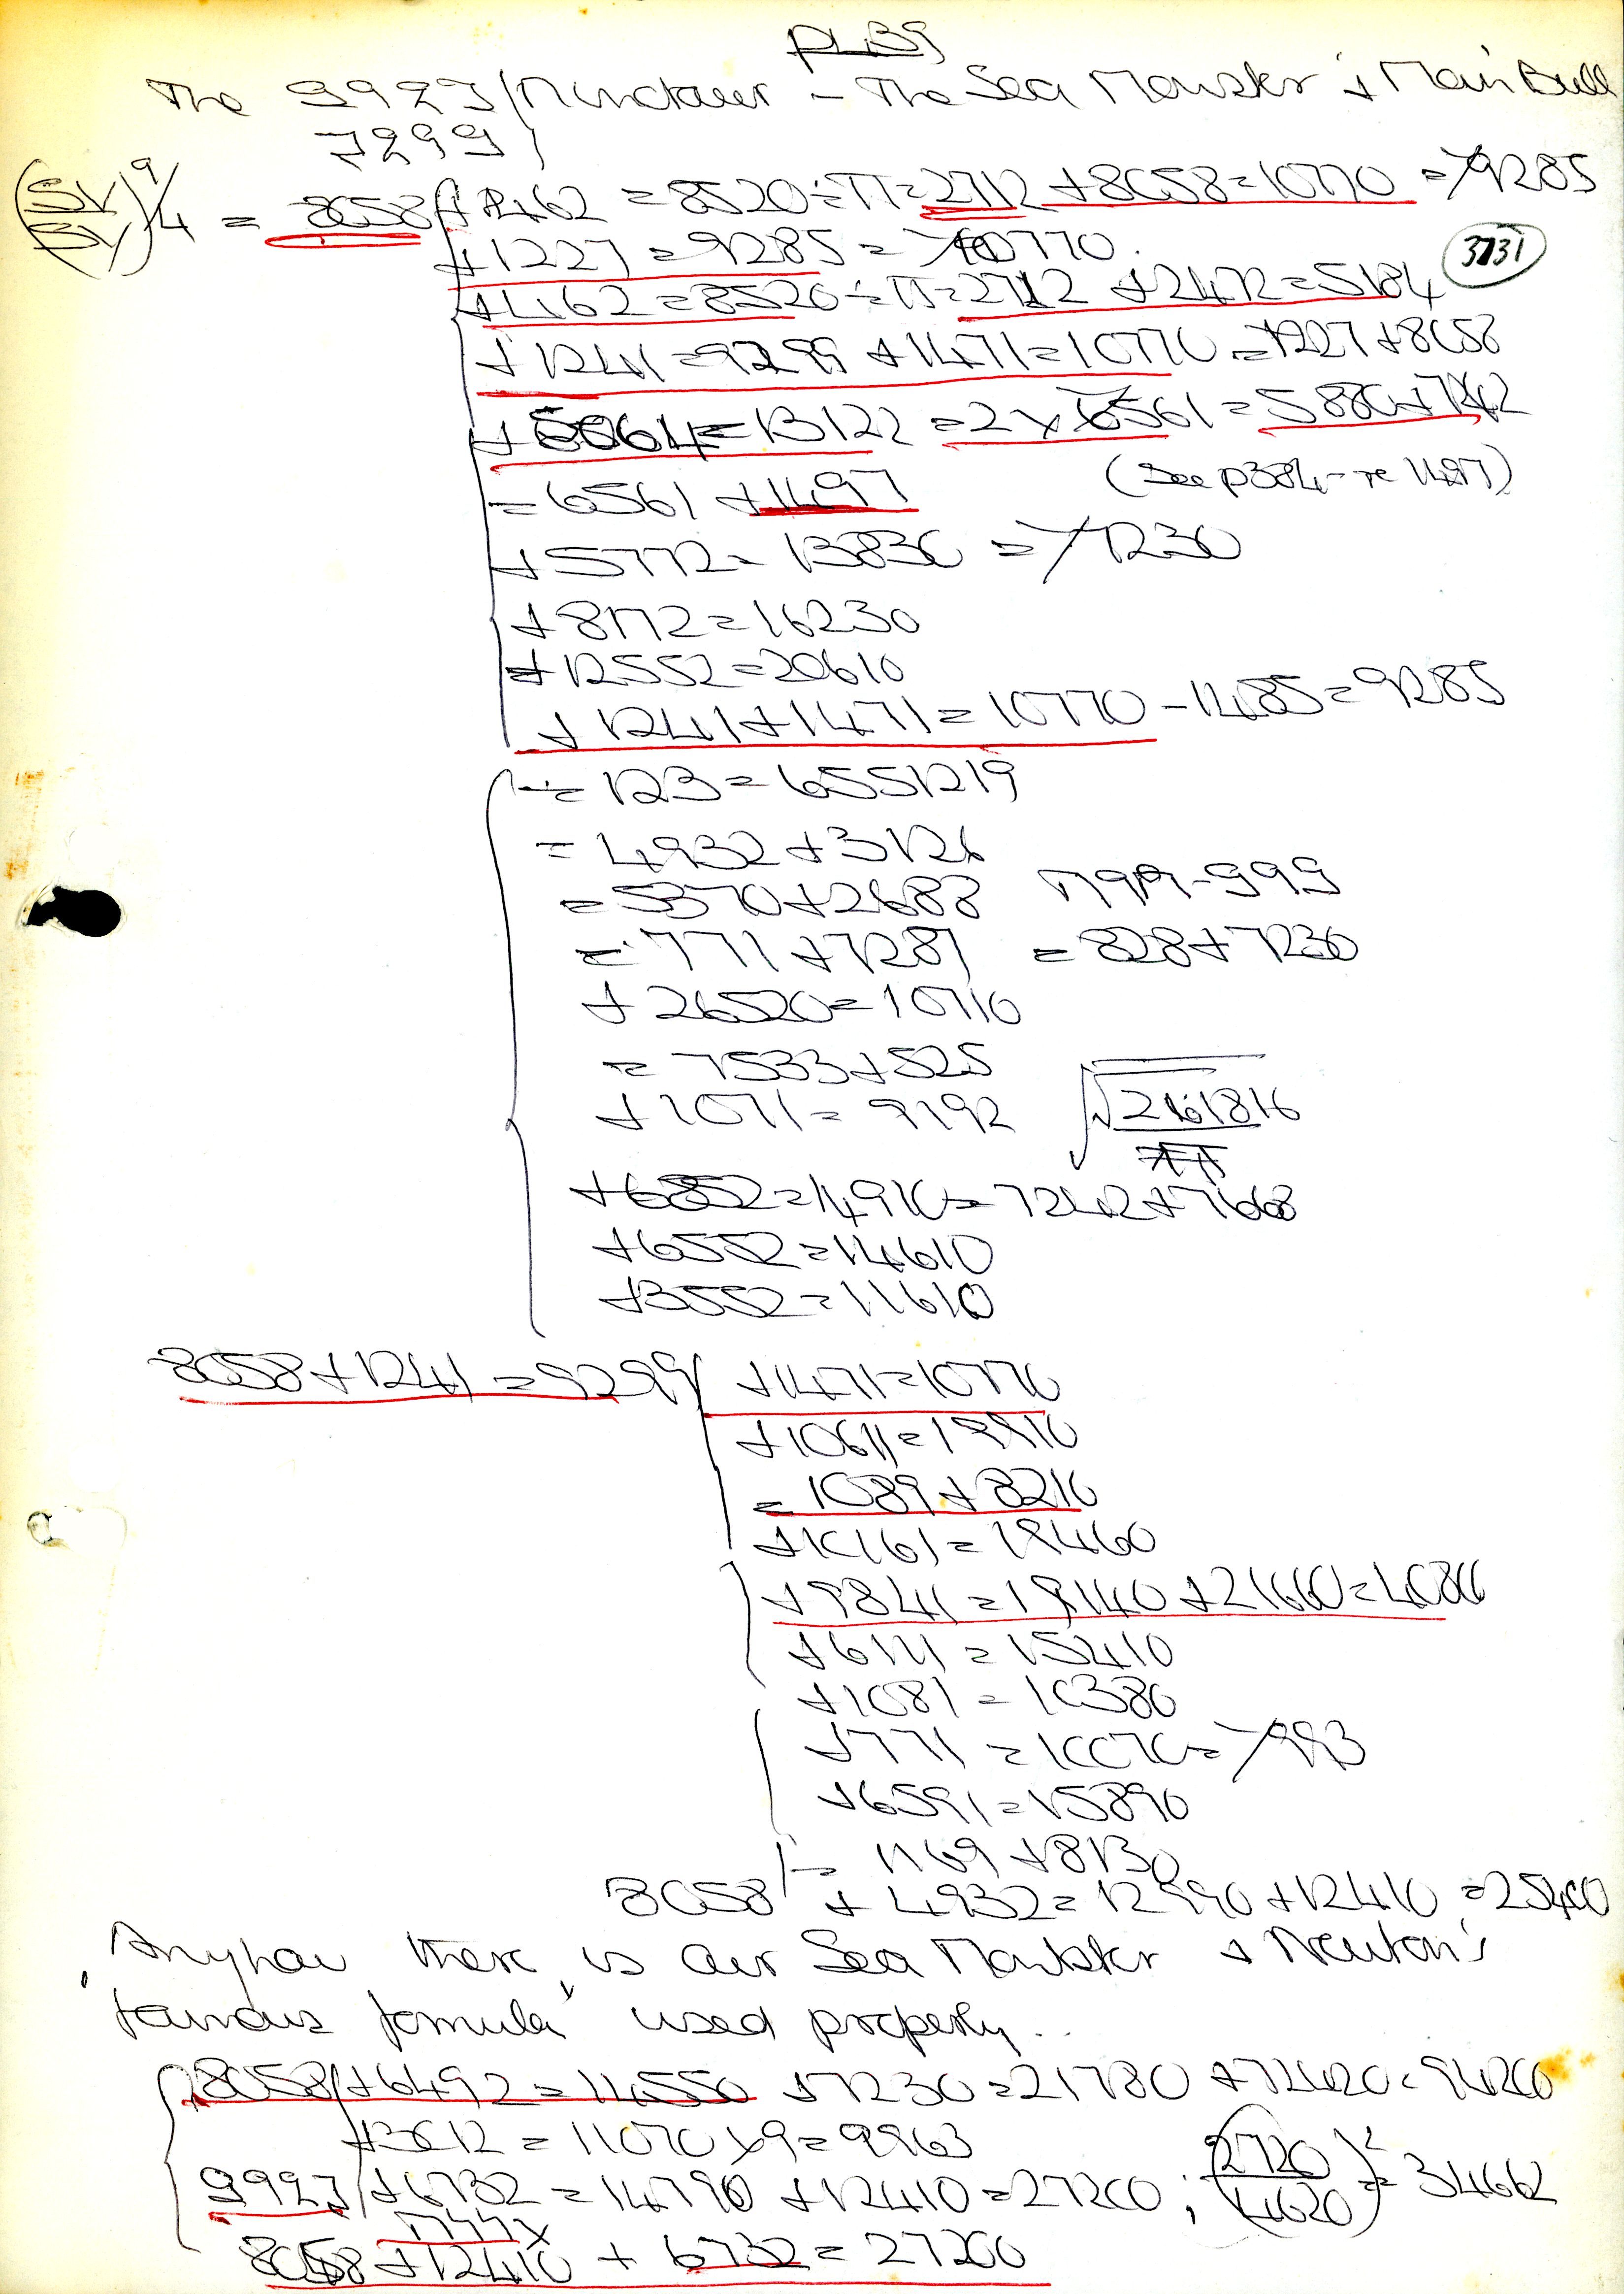 The 9929/Minotaur - The Sea Monster + Man Bull
7299
= 8058 + 462 = 8520 ÷ π = 2712 + 8058 = 10770 = > 9285
+ 1227 = 9285 = > 10770
3731
+ 462 = 8520 ÷ π = 2712 + 2472 = 5184
+ 1241 = 9299 + 1471 = 10770 = 1227 + 8058
+ 5064 = 13122 = 2 x 6561 = 5880 + 7242
= 6561 + 1497 (See p384 - re 1497)
+ 5772 = 13830 = > 7230
+ 8172 = 16230
+ 12552 = 20610
+ 1241 + 1471 = 10770 - 1485 = 9285
÷ 123 = 6551219
= 4932 + 3126
= 5370 + 2688
= 771 + 7287 = 828 + 7230
+ 26520 = 10710
= 7533 + 525
+ 1071 = 9192 √
+ 6852 = 14910 = 7242 + 7668
+ 6552 = 14610
+ 3552 = 11610
8058 + 1241 = 9299 + 1471 = 10770
+ 10611 = 19910
= 1089 + 8210
+ 10161 = 19460
+ 9841 = 19140 + 21660 = 4080
+ 6111 = 15410
+ 1081 = 10380
+ 771 = 10070 = > 993
+ 6591 = 15890
= 1169 + 8130
8058 + 4932 = 12990 + 12410 = 25400
Anyhow there is our Sea Monster + Newton's
'famous formula' used properly..
8058 + 6492 = 14550 + 7230 = 21780 + 72420 = 94200
+ 3012 = 11070 x 9 = 9963
9929 + 6732 = 14790 + 12410 = 27200 ; (2720/4620)² = 34662
8058 + 12410 + 6732 = 27200